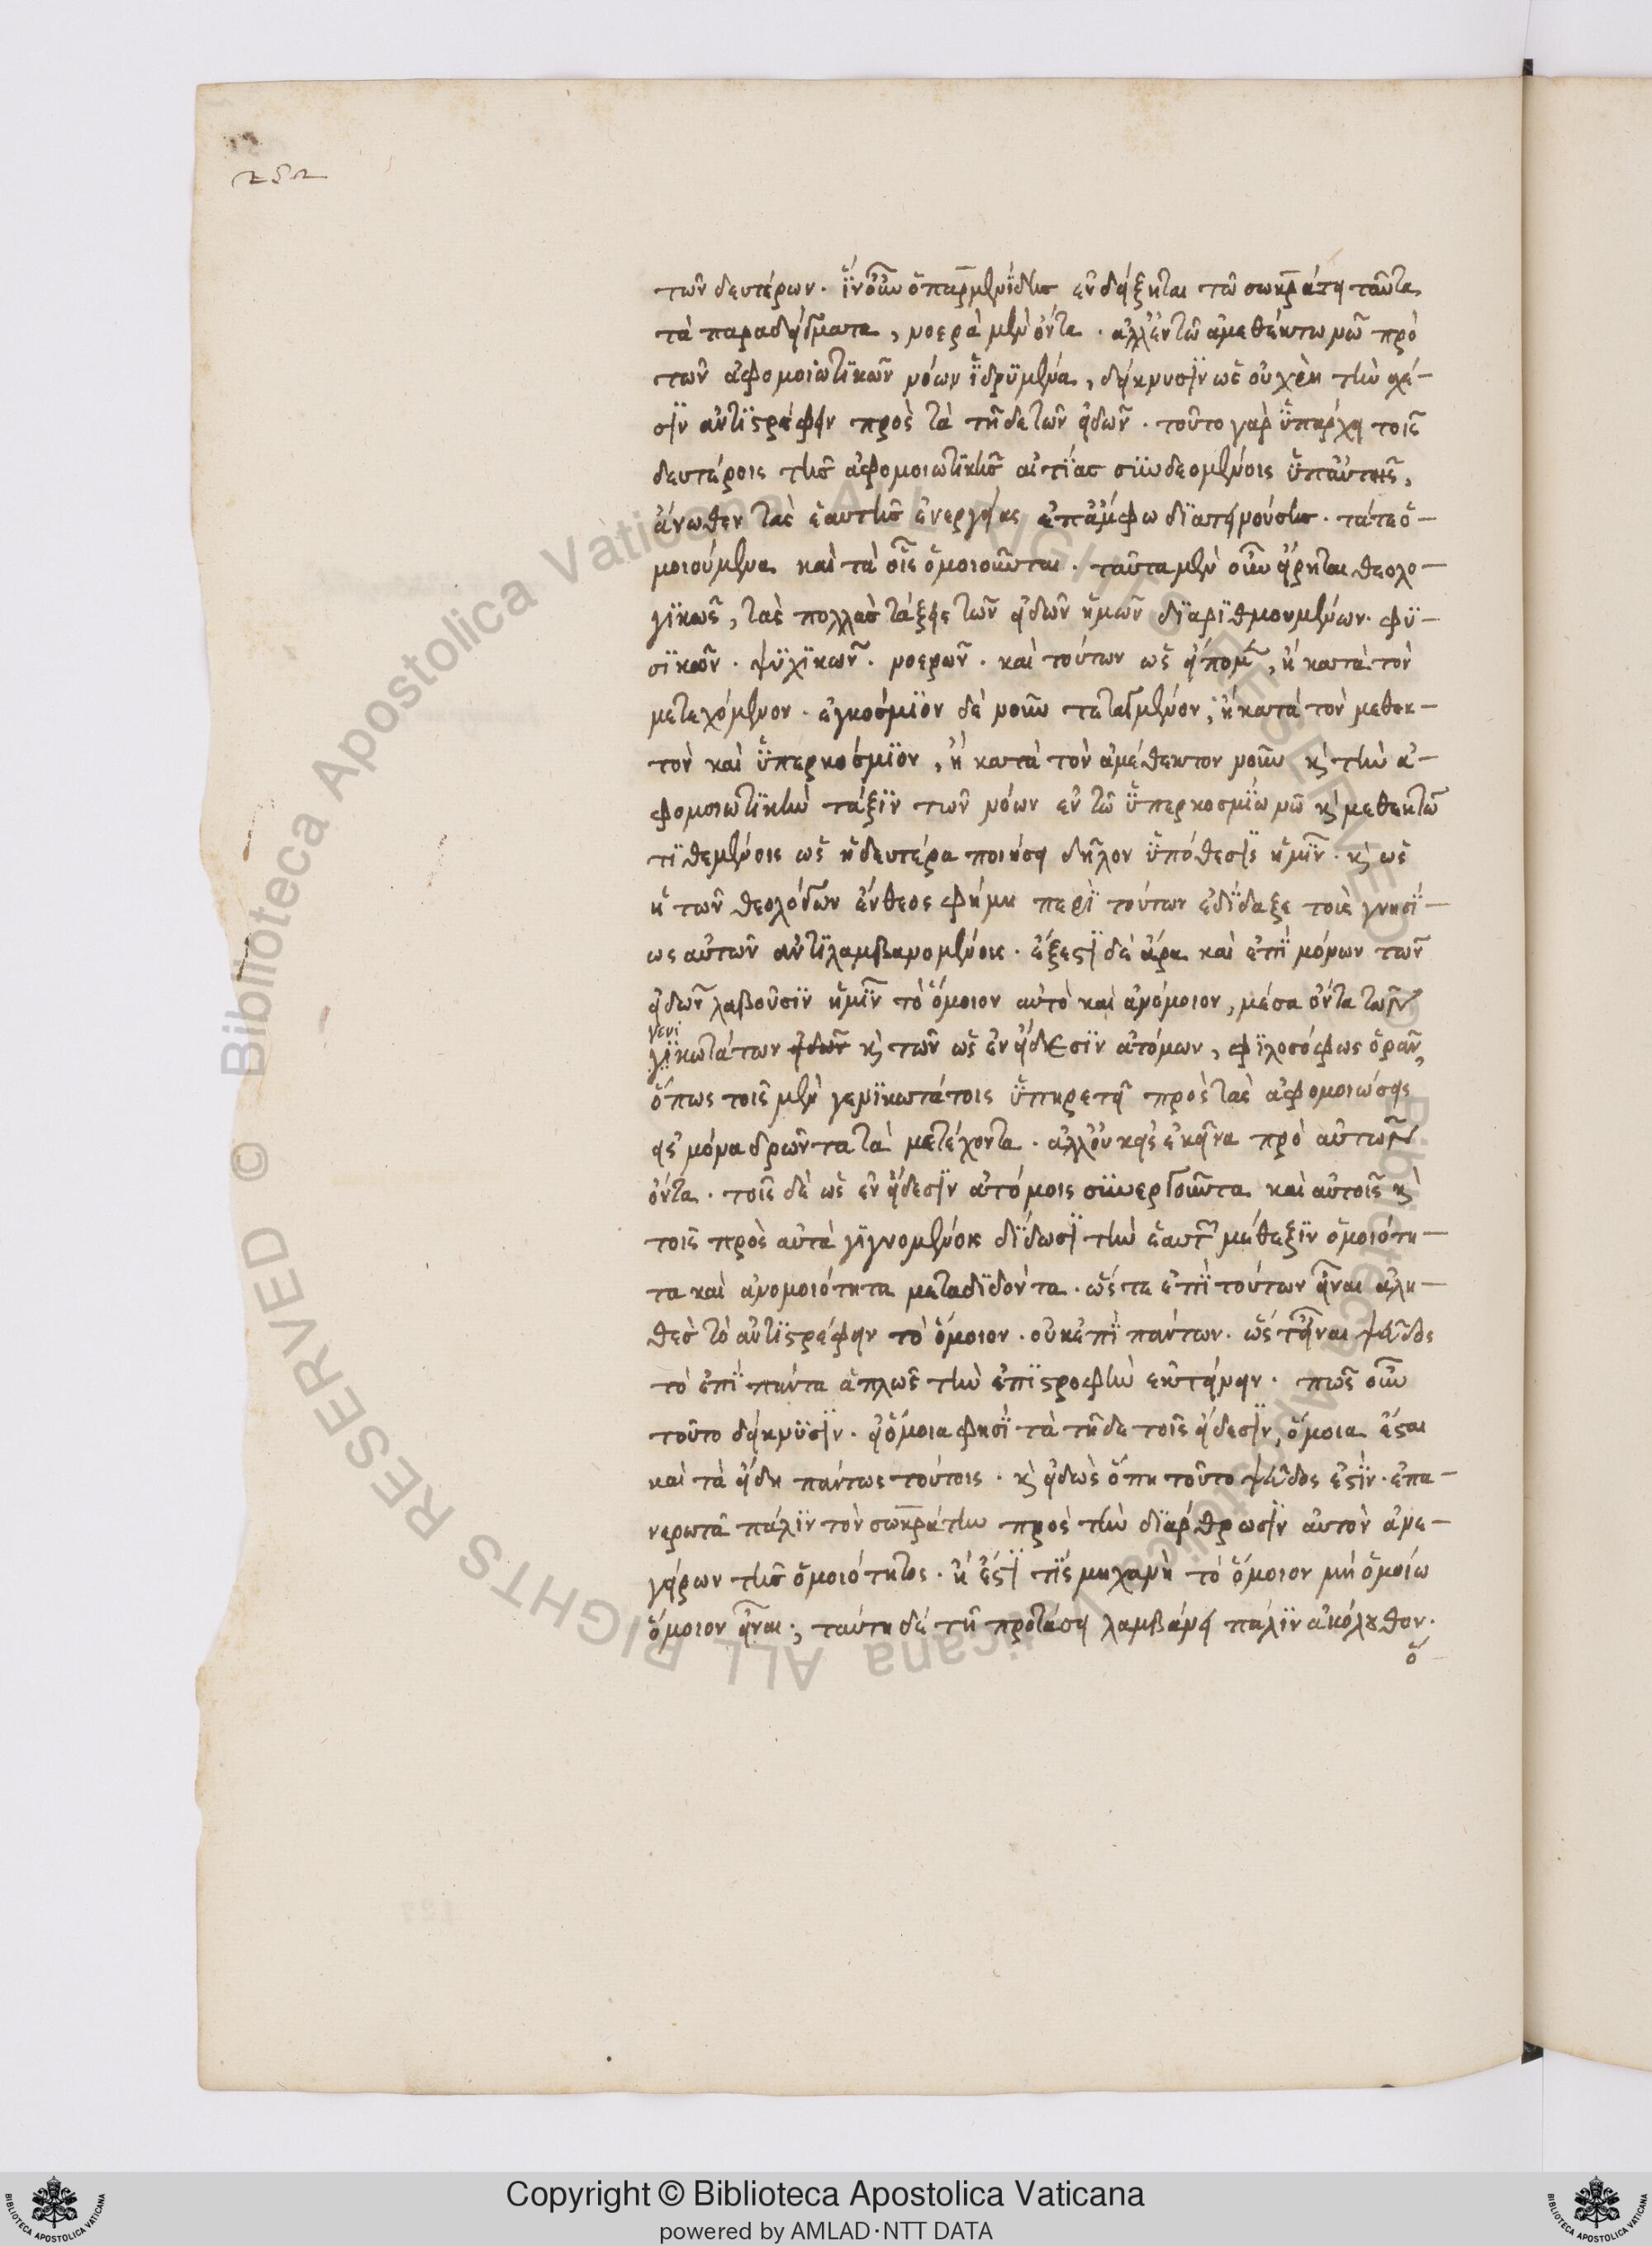 252
τῶν δευτέρων. ἵν' οὖν ὁ παρμενίδης ἐνδείξηται τῶ σωκράτει ταῦτα
τὰ παραδείγματα, νοερὰ μὲν ὄντα. ἀλλ' ἐν τῶ ἀμεθέκτω νῶ πρὸ
τῶν ἀφομοιωτικῶν νόων ἱδρυμένα, δείκνυσιν ὡς οὐ χρὴ τὴν σχέ-
σιν ἀντιστρέφειν πρὸς τὰ τῆδε τῶν εἰδῶν. τοῦτο γὰρ ὑπάρχει τοῖς
δευτέροις τῆς ἀφομοιωτικῆς αἰτίας συνδεομένοις ὑπ' αὐτῆς,
ἄνωθεν τὰς ἑαυτῆς ἐνεργείας ἐπ' ἄμφω διατεινούσης. τά τε ὁ-
μοιούμενα καὶ τὰ οἷς ὁμοιοῦνται. ταῦτα μὲν οὖν εἴρηται θεολο-
γικῶς, τὰς πολλὰς τάξεις τῶν εἰδῶν ἡμῶν διαριθμουμένων. φυ-
σικῶν. ψυχικῶν. νοερῶν. καὶ τούτων ὡς εἴπομεν, ἢ κατὰ τὸν
μετεχόμενον. ἐγκόσμιον δὲ νοῦν τεταγμένον, ἢ κατὰ τὸν μεθεκ-
τὸν καὶ ὑπερκόσμιον, ἢ κατὰ τὸν ἀμέθεκτον νοῦν κ τὴν ἀ-
φομοιωτικὴν τάξιν τῶν νόων ἐν τῶ ὑπερκοσμίω νῶ κ μεθεκτῶ
τιθεμένοις ὡς ἡ δευτέρα ποιήσει δῆλον ὑπόθεσις ἡμῖν. κ ὡς
ἡ τῶν θεολόγων ἔνθεος φήμη περὶ τούτων ἐδίδαξε τοῖς γνησί-
ως αὐτῶν ἀντιλαμβανομένοις. ἔξεστι δὲ ἄρα καὶ ἐπὶ μόνων τῶν
εἰδῶν λαβοῦσιν ἡμῖν τὸ ὅμοιον αὐτὸ καὶ ἀνόμοιον, μέσα ὄντα τῶν
γενι
γικωτάτων εἰδῶν κ τῶν ὡς ἐν εἴδεσιν ἀτόμων, φιλοσόφως ὁρᾶν,
ὅπως τοῖς μὲν γενικωτάτοις ὑπηρετεῖ πρὸς τὰς ἀφομοιώσεις
εἰς μόνα δρῶντα τὰ μετέχοντα. ἀλλ' οὐκ εἰς ἐκεῖνα πρὸ αὐτῶν
ὄντα. τοῖς δὲ ὡς ἐν εἴδεσιν ἀτόμοις συνεργοῦντα καὶ αὐτοῖς κ
τοῖς πρὸς αὐτὰ γιγνομένοις δίδωσι τὴν ἑαυτῶν μέθεξιν ὁμοιότη-
τα καὶ ἀνομοιότητα μεταδιδόντα. ὥστε ἐπὶ τούτων εἶναι ἀλη-
θὲς τὸ ἀντιστρέφειν τὸ ὅμοιον. οὐκ ἐπὶ πάντων. ὥστ' εἶναι ψεῦδος
τὸ ἐπὶ πάντα ἁπλῶς τὴν ἐπιστροφὴν ἐκτείνειν. πῶς οὖν
τοῦτο δείκνυσιν. εἰ ὅμοια φησὶ τὰ τῆδε τοῖς εἴδεσιν, ὅμοια ἔσται
καὶ τὰ εἴδη πάντως τούτοις. κ εἰδὼς ὅπη τοῦτο ψεῦδος ἐστίν. ἐπα-
νερωτᾶ πάλιν τὸν σωκράτην πρὸς τὴν διάρθρωσιν αὐτὸν ἀνε-
γείρων τῆς ὁμοιότητος. ἢ ἔστι τίς μηχανὴ τὸ ὅμοιον μὴ ὁμοίω
ὅμοιον εἶναι; ταύτη δὲ τῆ προτάσει λαμβάνει πάλιν ἀκόλουθον.
ὅ
Copyright © Biblioteca Apostolica Vaticana
powered by AMLAD·NTT DATA